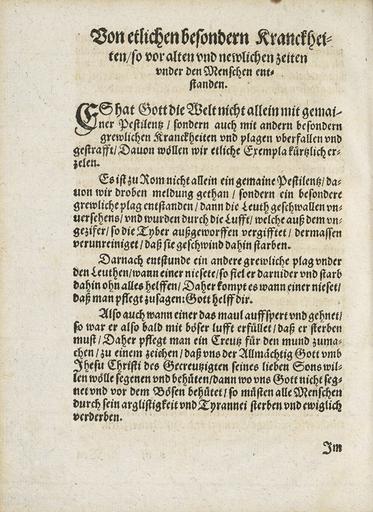 Von etlichen besondern Kranckhei-
ten/so vor alten vnd newlichen zeiten
vnder den Menschen ent-
standen.
ES hat Gott die Welt nicht allein mit gemai-
ner Pestilentz / sondern auch mit andern besondern
grewlichen Kranckheiten vnd plagen vberfallen vnd
gestrafft/ Dauon wöllen wir etliche Exempla kürtzlich er-
zelen.
Es ist zu Rom nicht allein ein gemaine Pestilentz/ da-
uon wir droben meldung gethan / sondern ein besondere
grewliche plag entstanden / dann die Leuth geschwallen vn-
uersehens/ vnd wurden durch die Lufft/ welche auß dem vn-
gezifer/ so die Tyber außgeworffen vergifftet / dermassen
verunreiniget / daß sie geschwind dahin starben.
Darnach entstunde ein andere grewliche plag vnder
den Leuthen/wann einer niesete/so fiel er darnider vnd starb
dahin ohn alles helffen / Daher kompt es wann einer nieset/
daß man pflegt zusagen: Gott helff dir.
Also auch wann einer das maul auffspert vnd gehnet/
so war er also bald mit böser lufft erfüllet / daß er sterben
must / Daher pflegt man ein Creutz für den mund zuma-
chen / zu einem zeichen / daß vns der Allmächtig Gott vmb
Jhesu Christi des Gecreutzigten seines lieben Sons wil-
len wölle segenen vnd behüten/ dann wo vns Gott nicht seg-
net vnd vor dem Bösen behütet / so müsten alle Menschen
durch sein arglistigkeit vnd Tyrannei sterben vnd ewiglich
verderben.
Im